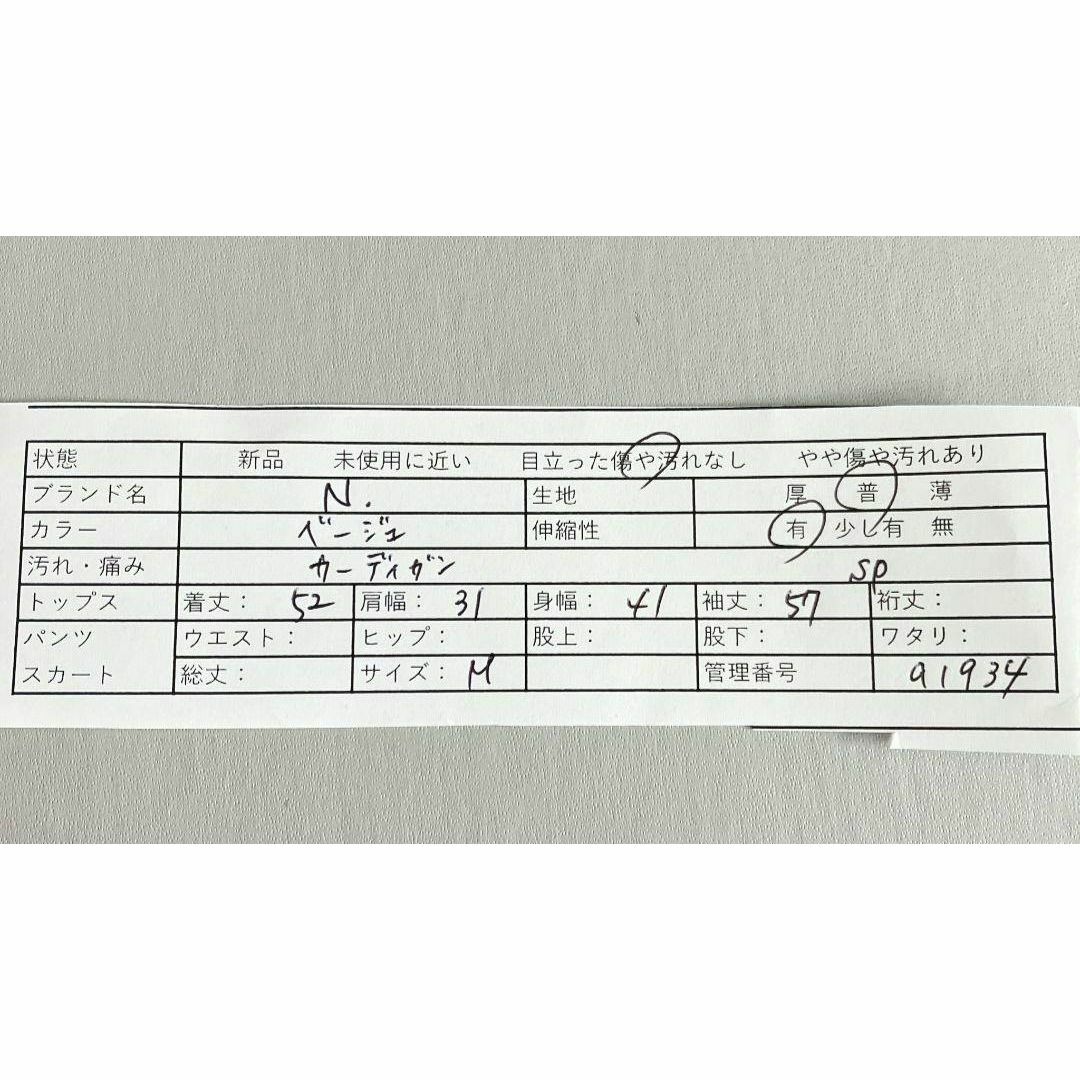 状態 新品 未使用に近い 目立った傷や汚れなし やや傷や汚れあり
ブランド名 N. 生地 厚 普 薄
カラー ベージュ 伸縮性 有 少し有 無
汚れ・痛み カーディガン SP
トップス 着丈： 52 肩幅： 31 身幅： 41 袖丈： 57 裄丈：
パンツ ウエスト： ヒップ： 股上： 股下： ワタリ：
スカート 総丈： サイズ： M 管理番号 a1934